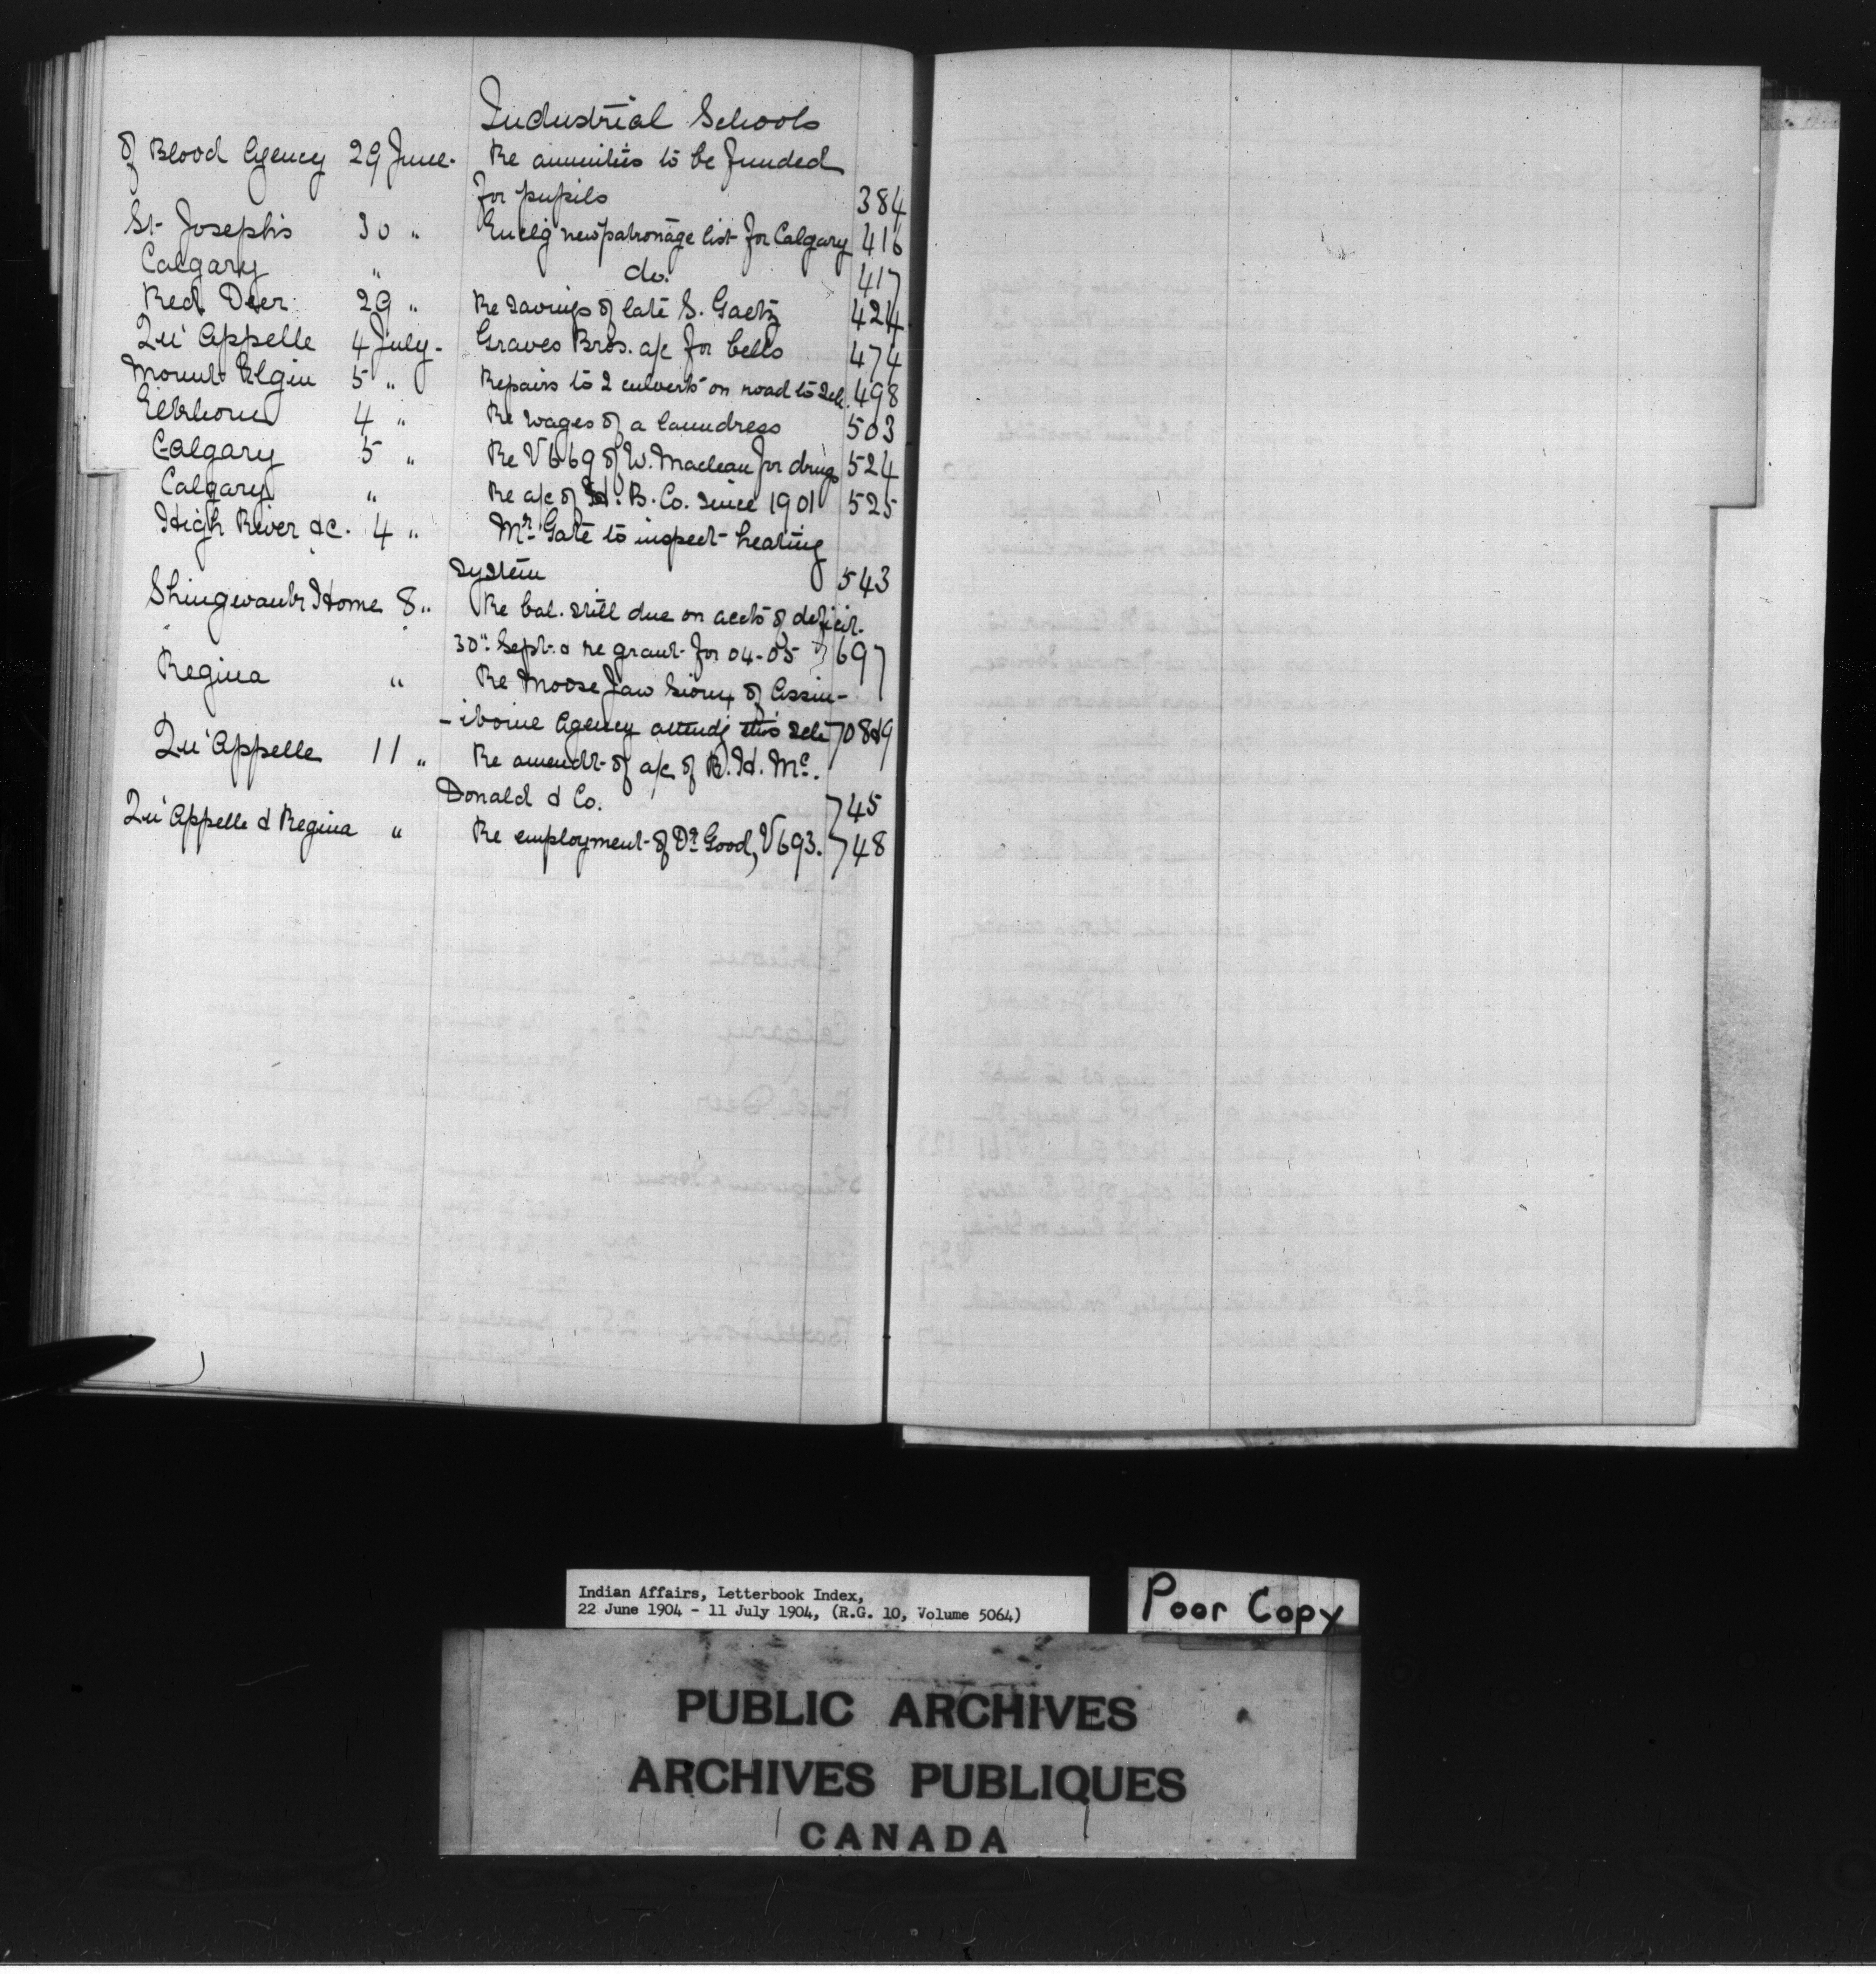 Industrial Schools
of Blood Agency 29 June. Re annuities to be funded
for pupils 384
St. Joseph's 30 " Enclg new patronage list for Calgary 416
Calgary " do. 417
Red Deer 29 " Re savings of late S. Gaetz 424
Qu'Appelle 4 July. Graves Bros. a/c for bells 474
Mount Elgin 5 " Repairs to 2 culverts on road to Sch. 498
Elkhorn 4 " Re wages of a laundress 503
Calgary 5 " Re V669 of W. Maclean for drugs 524
Calgary " Re a/c of H. B. Co. since 1901 525
High River &c. 4 " Mr. Gate to inspect heating
system 543
Shingwauk Home 8 " Re bal. still due on accts of deficit.
30" Sept. & re grant for 04-05 697
Regina " Re Moose Jaw Sioux of Assin-
-iboine Agency attendg this Sch 708&9
Qu'Appelle 11 " Re amendt. of a/c of R. H. Mc.
Donald & Co. 745
Qu'Appelle & Regina " Re employment of Dr. Good, V693. 748
Indian Affairs, Letterbook Index,
22 June 1904 - 11 July 1904, (R.G. 10, Volume 5064)
Poor Copy
PUBLIC ARCHIVES
ARCHIVES PUBLIQUES
CANADA